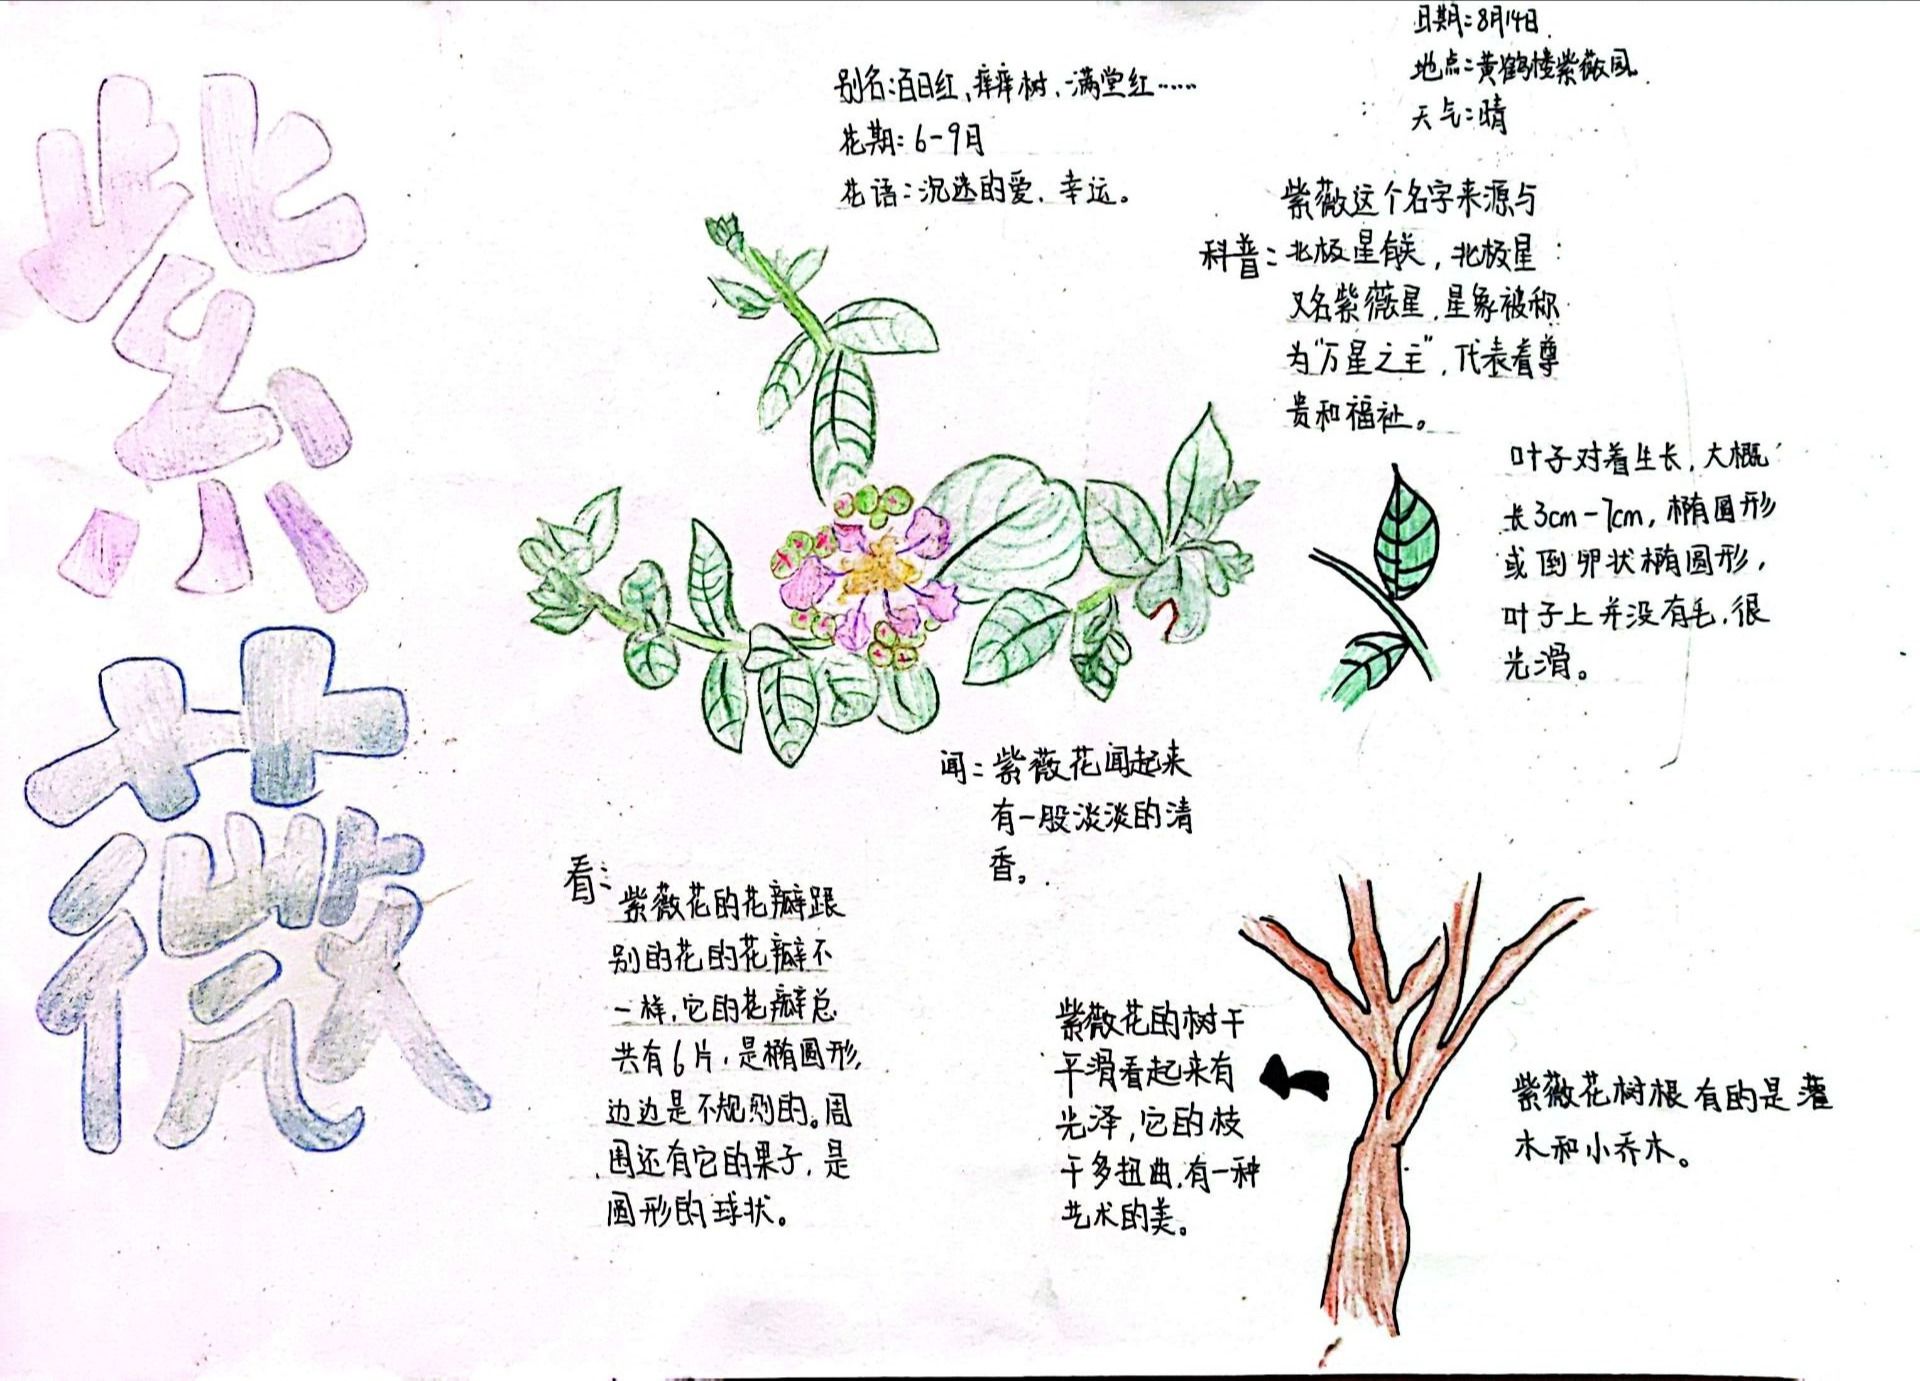 紫薇
日期：8月14日.
地点：黄鹤楼紫薇园.
天气：晴
别名：百日红、痒痒树、满堂红……
花期：6-9月
花语：沉迷的爱、幸运。
紫薇这个名字来源与
科普：北极星有关，北极星
又名紫薇星，星象被称
为“万星之主”，代表着尊
贵和福祉。
叶子对着生长，大概
长3cm-7cm，椭圆形
或倒卵状椭圆形，
叶子上并没有毛，很
光滑。
闻：紫薇花闻起来
有一股淡淡的清
香。
看：紫薇花的花瓣跟
别的花的花瓣不
一样，它的花瓣总
共有6片，是椭圆形，
边边是不规则的。周
围还有它的果子，是
圆形的球状。
紫薇花的树干
平滑看起来有
光泽，它的枝
干多扭曲，有一种
艺术的美。
紫薇花树根有的是灌
木和小乔木。